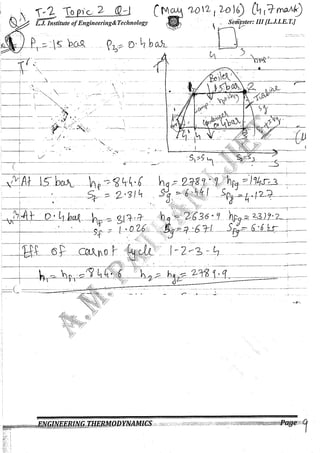 Q.1 T-2 Topic 2 Q-1 (May 2012, 2016) (4,7 mark)
L.J. Institute of Engineering&Technology Semester: III [L.J.I.E.T.]
P₁ = 15 bar P₃ = 0.4 bar
T
Boiler
15 bar
Turbine
0.4 bar
S
At 15 bar hf = 844.6 hg = 2789.9 hfg = 1945.3
Sf = 2.314 Sg = 6.441 Sfg = 4.127
At 0.4 bar hf = 317.7 hg = 2636.9 hfg = 2319.2
Sf = 1.026 Sg = 7.671 Sfg = 6.645
Eff of carnot cycle 1-2-3-4
h₁ = hf₁ = 844.6 h₂ = hg₂ = 2789.9
ENGINEERING THERMODYNAMICS Page 9